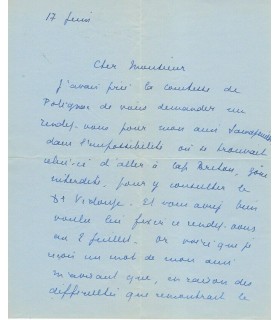 17 juin
Cher Monsieur
J'avais prié la comtesse de
Polignac de vous demander un
rendez-vous pour mon ami
dans l'impossibilité où se trouvait
d'aller à Cap Breton, zône
interdite, pour y consulter le
Dr. Et vous avez bien
voulu lui fixer ce rendez-vous
au 2 juillet. Or voici que je
reçois un mot de mon ami
m'avisant que, en raison des
difficultés que rencontrait le